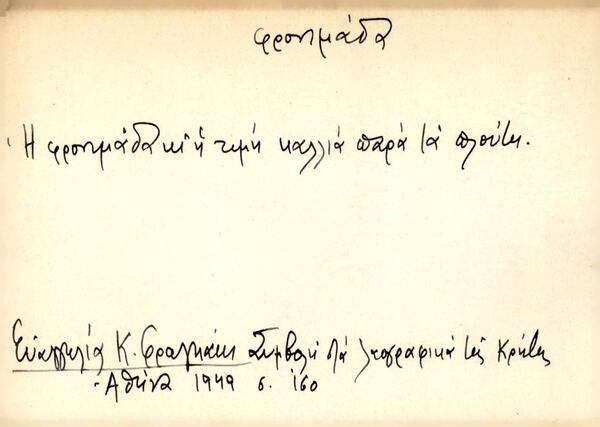 φρονιμάδα
Ἡ φρονιμάδα κι ἡ τιμή καλλιά παρά τά πλούτη.
Εὐαγγελία Κ. Φραγκάκι Συμβολή στά λαογραφικά τῆς Κρήτης
Ἀθήνα 1949 σ. 160